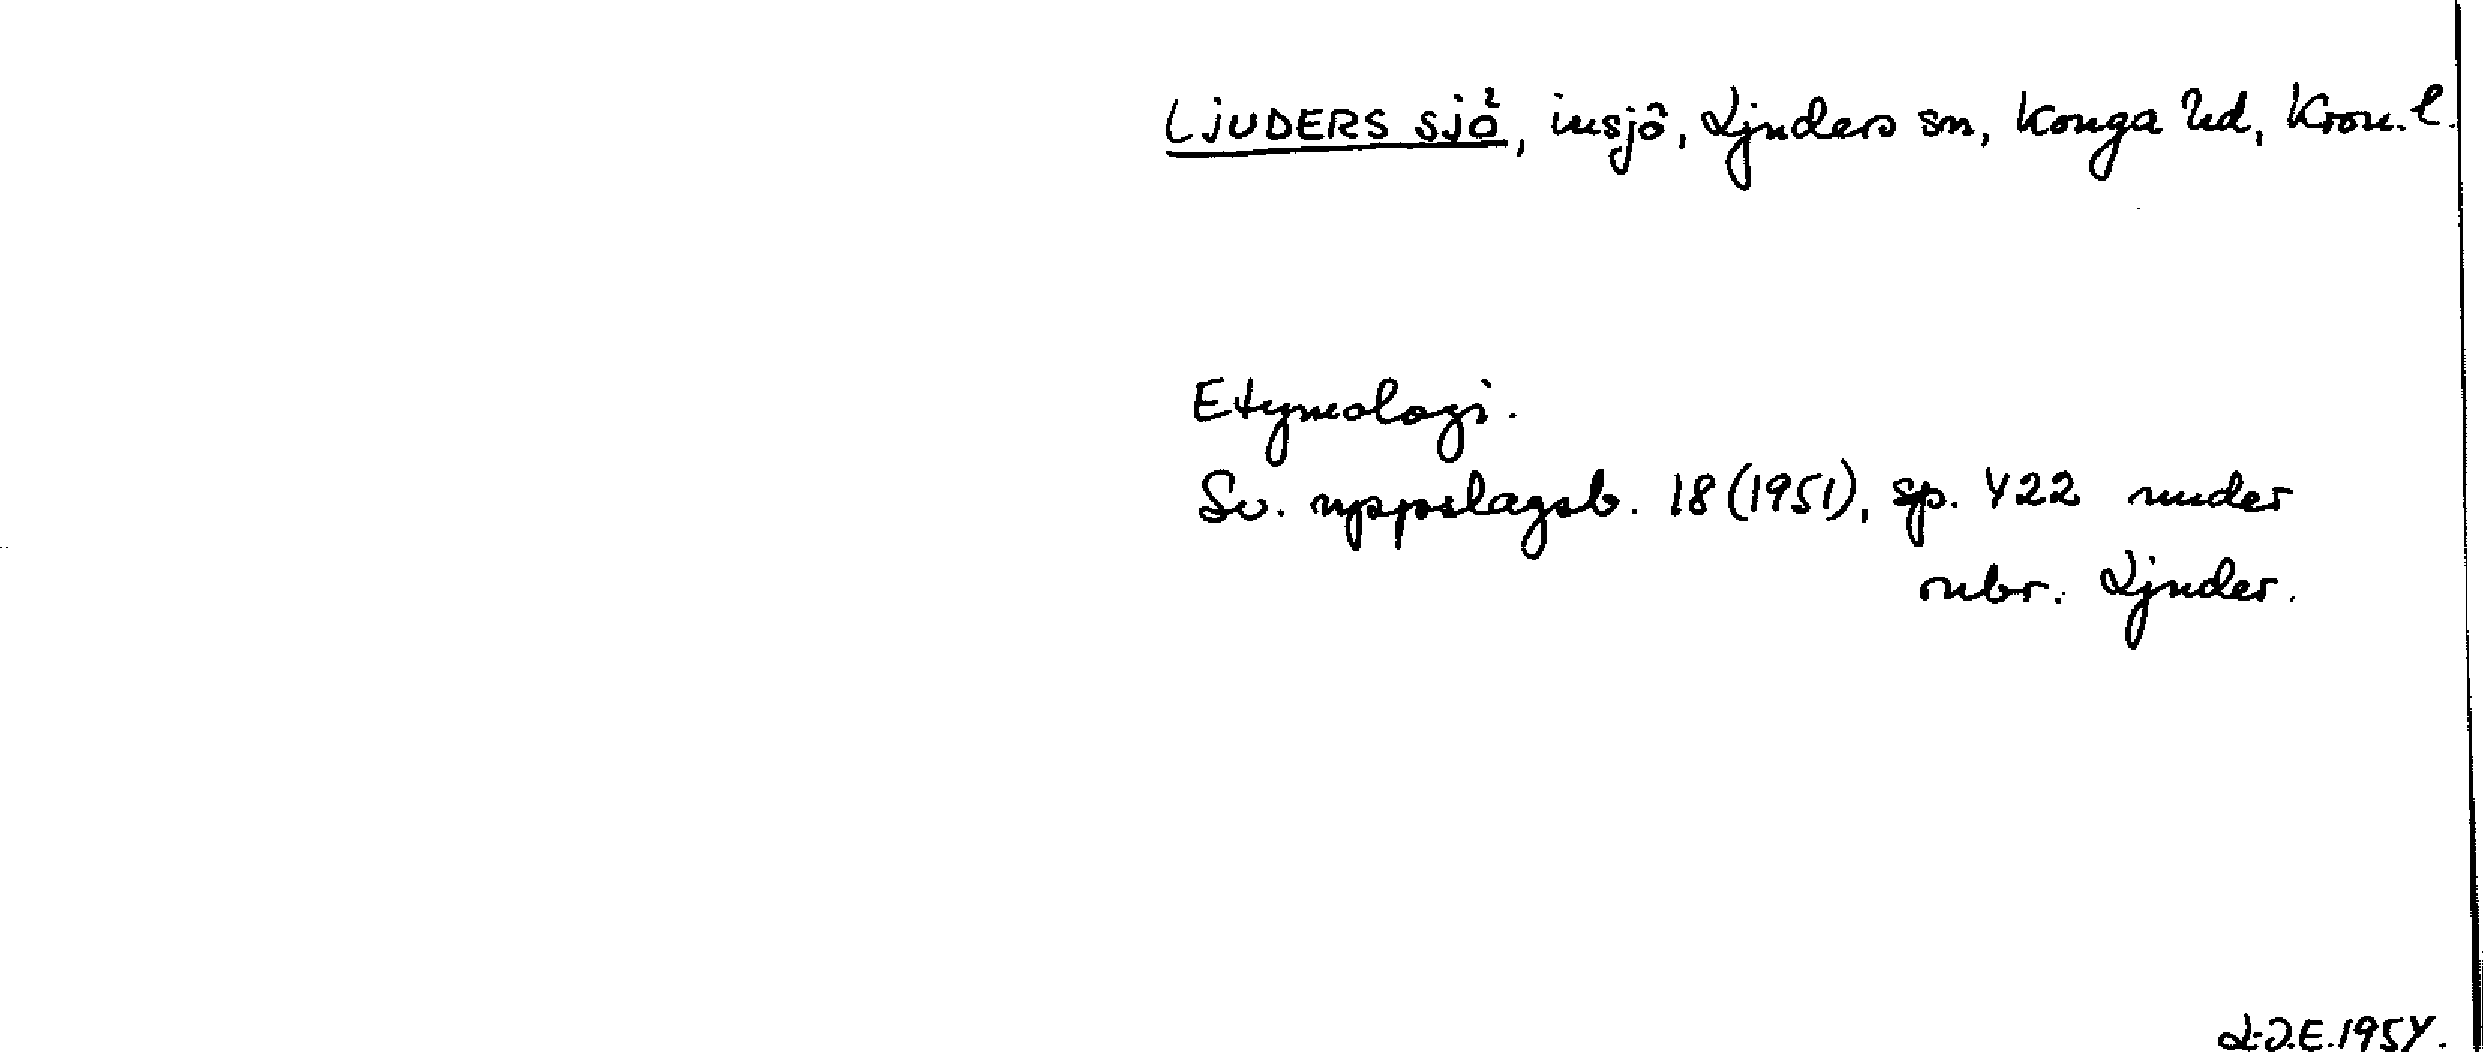 LJUDERS SJÖ, insjö, Ljuders sn, Konga hd, Kron. l.
Etymologi.
Sv. uppslagsb. 18 (1951), sp. 422 under
rubr. Ljuder.
L-J.E. 1954.